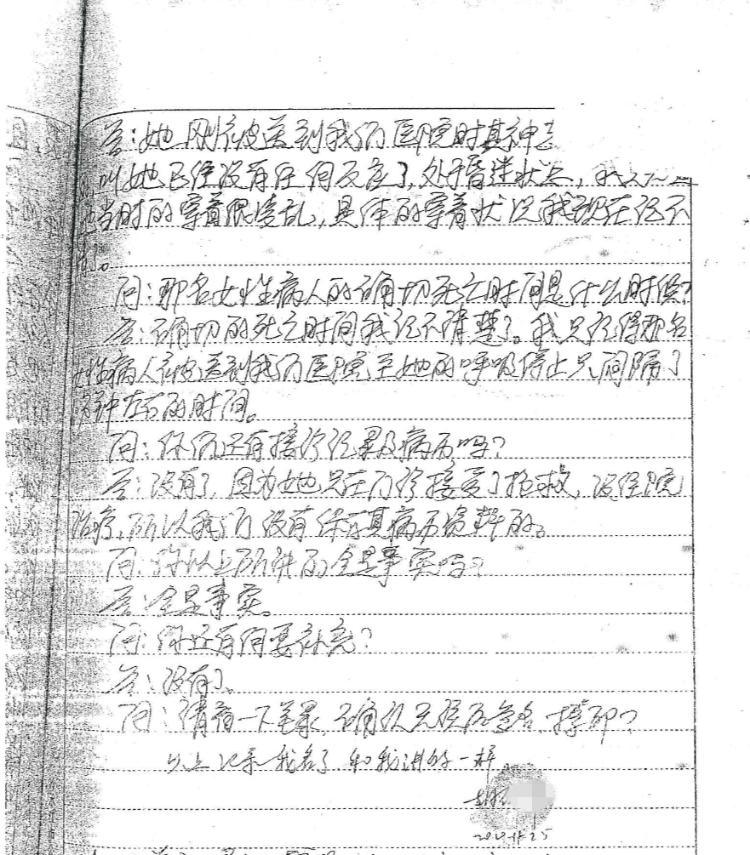 答：她刚被送到我们医院时其神志
叫她已经没有任何反应了，处于昏迷状态，
她当时的穿着很凌乱，具体的穿着状况我现在记不
问：那名女性病人的确切死亡时间是什么时候？
答：确切的死亡时间我记不清楚了。我只记得那名
女性病人被送到我们医院至她的呼吸停止只间隔了
分钟左右的时间。
问：你们还有接诊记录及病历吗？
答：没有了，因为她只在门诊接受了抢救，没经院
治疗，所以我们没有保存其病历资料的。
问：你以上所讲的全是事实吗？
答：全是事实。
问：你还有何要补充？
答：没有了。
问：请看一下笔录，确认无误后签名、捺印？
以上记录我看了和我讲的一样